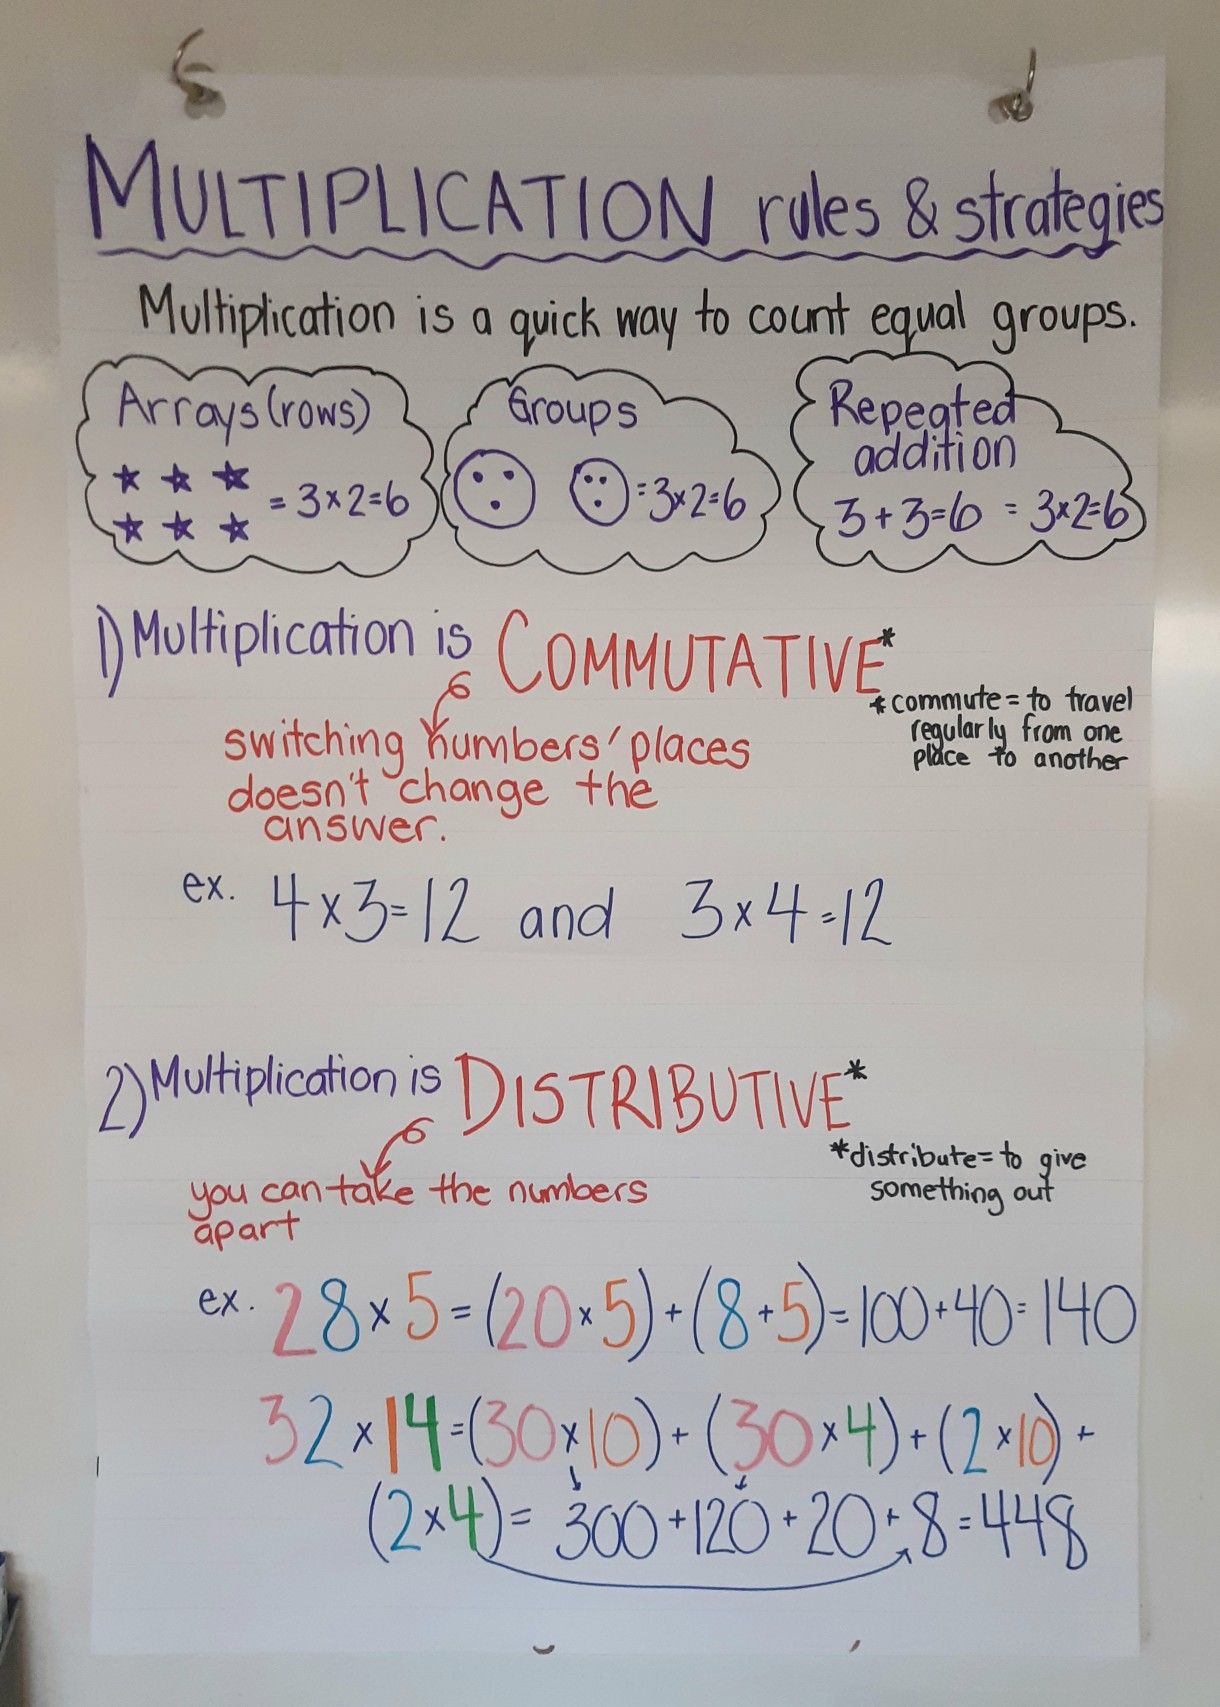 MULTIPLICATION rules & strategies
Multiplication is a quick way to count equal groups.
Arrays (rows)
= 3×2=6
Groups
=3×2=6
Repeated
addition
3+3=6 = 3×2=6
1) Multiplication is COMMUTATIVE*
*commute = to travel
regularly from one
place to another
switching numbers' places
doesn't change the
answer.
ex. 4×3=12 and 3×4=12
2) Multiplication is DISTRIBUTIVE*
*distribute= to give
something out
you can take the numbers
apart
ex. 28×5=(20×5)+(8+5)=100+40=140
32×14=(30×10)+(30×4)+(2×10)+
(2×4)= 300+120+20+8=448